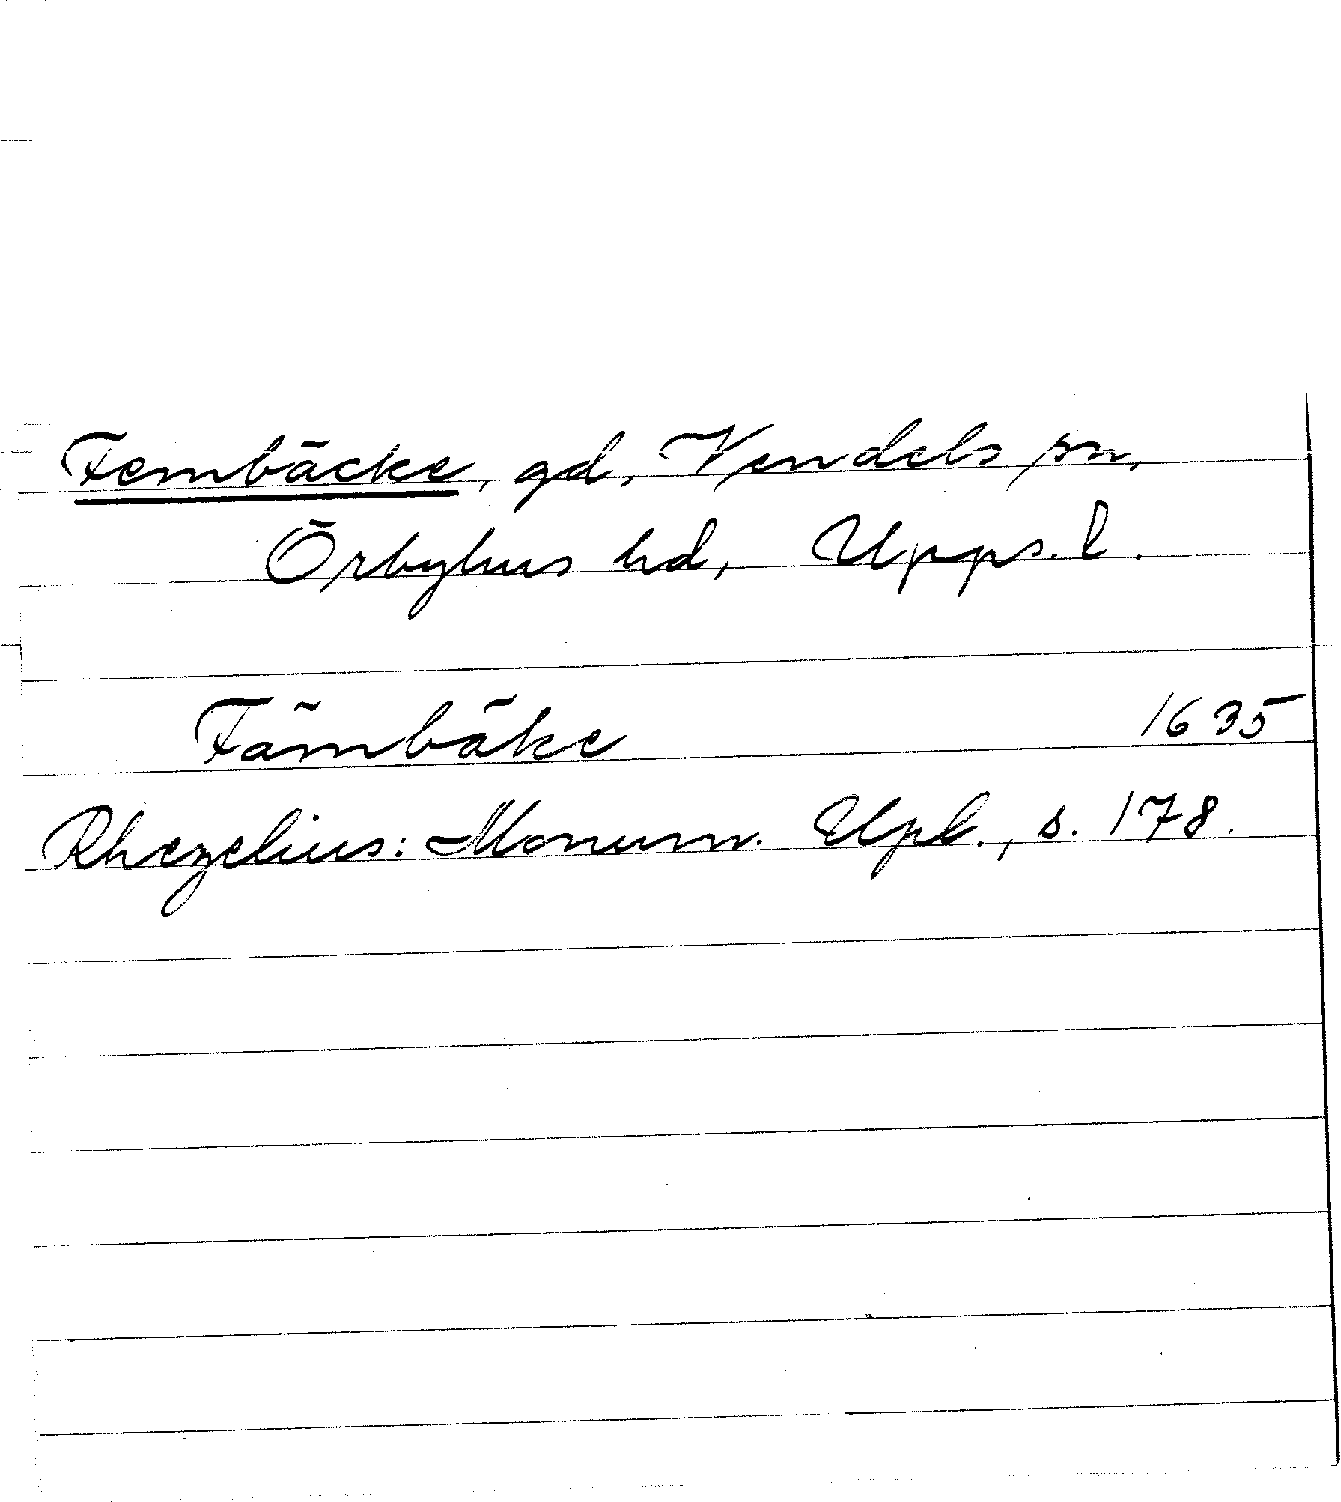 Fembäcke, gd, Vendels sn,
Örbyhus hd, Upps. l.
Fämbäke 1635
Rhezelius: Monum. Upl., s. 178.